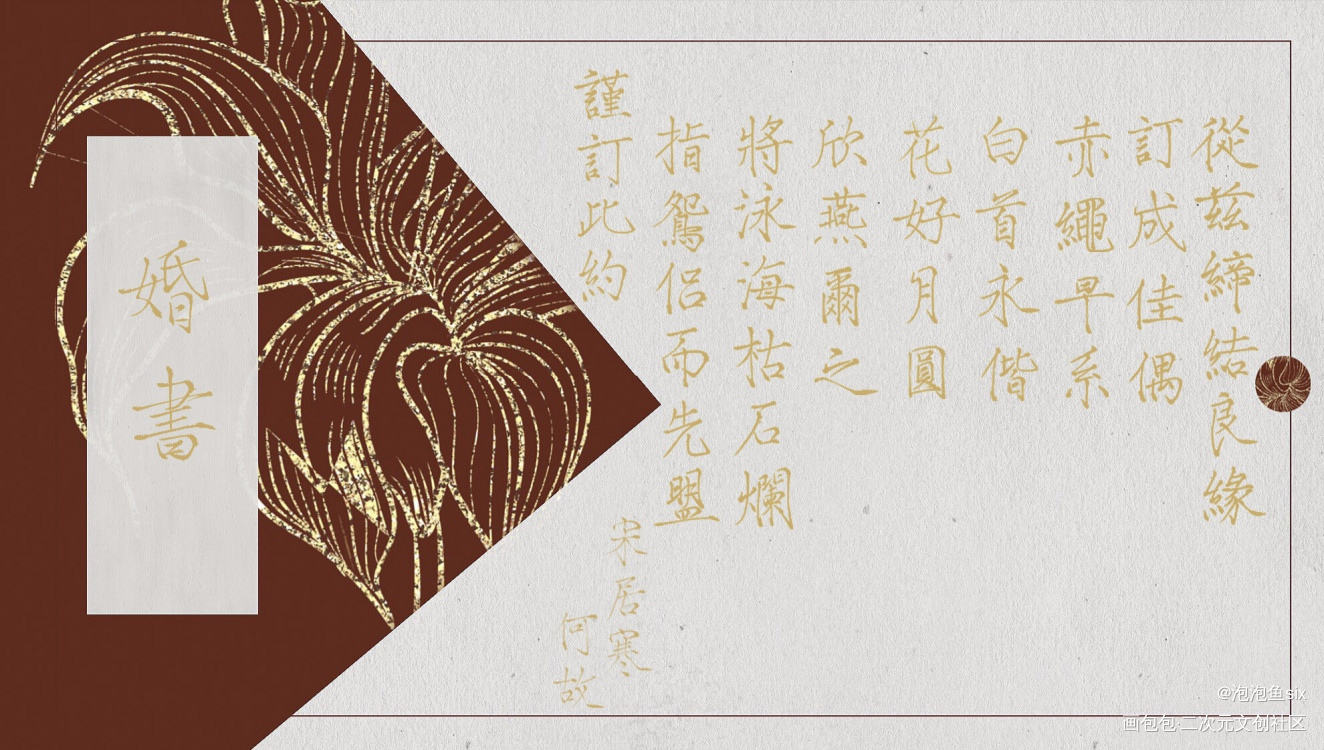 從茲締結良緣
訂成佳偶
赤繩早系
白首永偕
花好月圓
欣燕爾之
將泳海枯石爛
指鴛侶而先盟
謹訂此約
宋居寒
何故
婚書
@泡泡鱼six
画包包·二次元文创社区